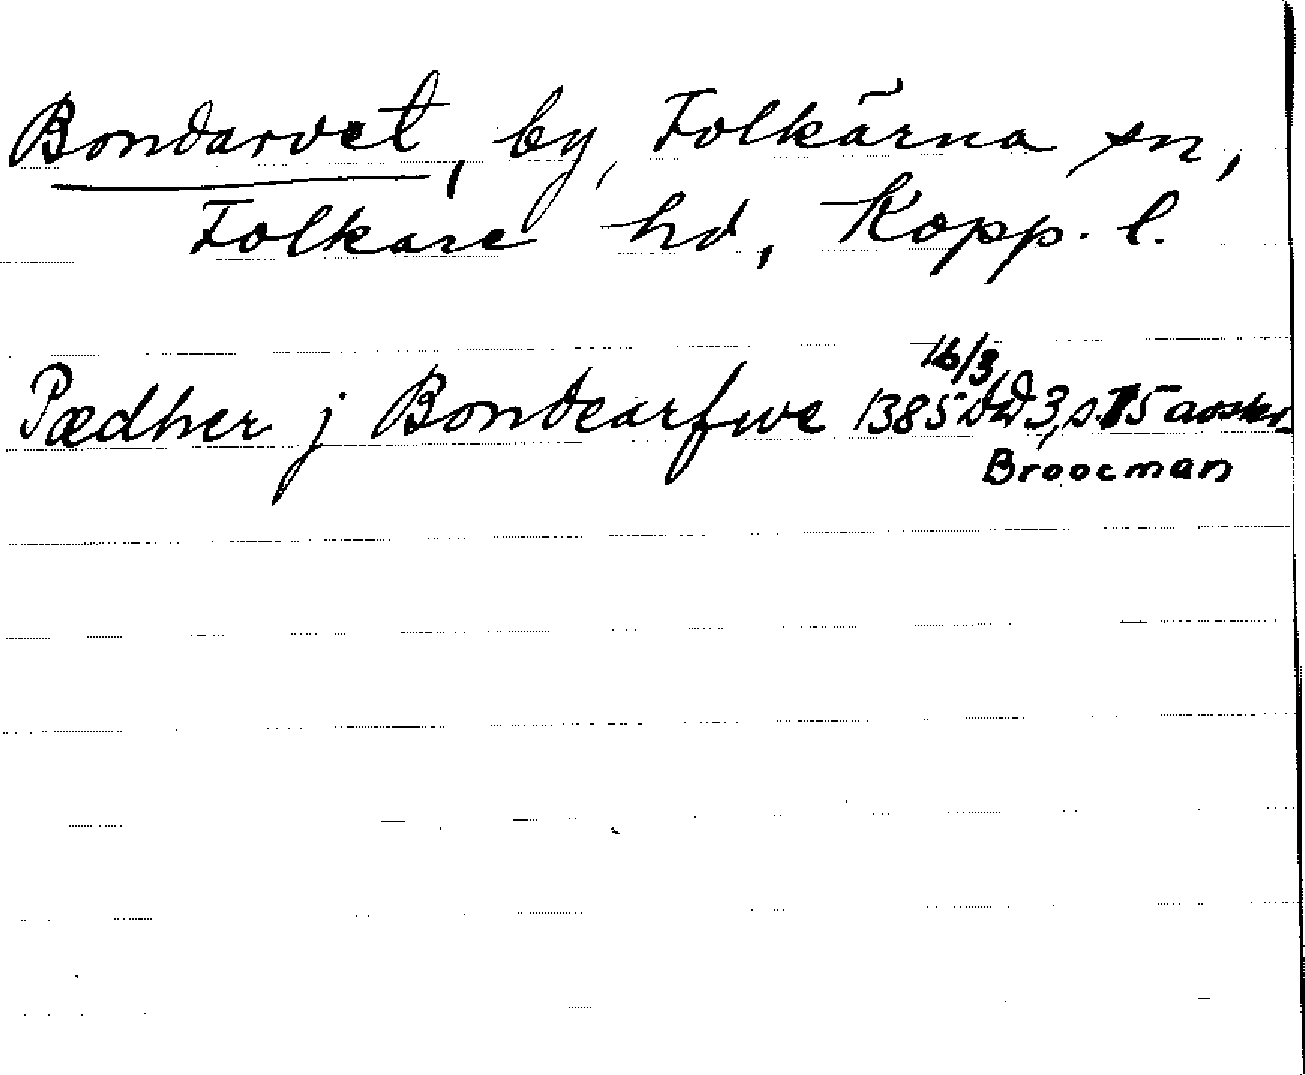 Bondarvet, by, Folkärna sn,
Folkare hd, Kopp. l.
16/3
Pædher j Bondearfwe 1385 DD 3, s. 15 avskr.
Broocman